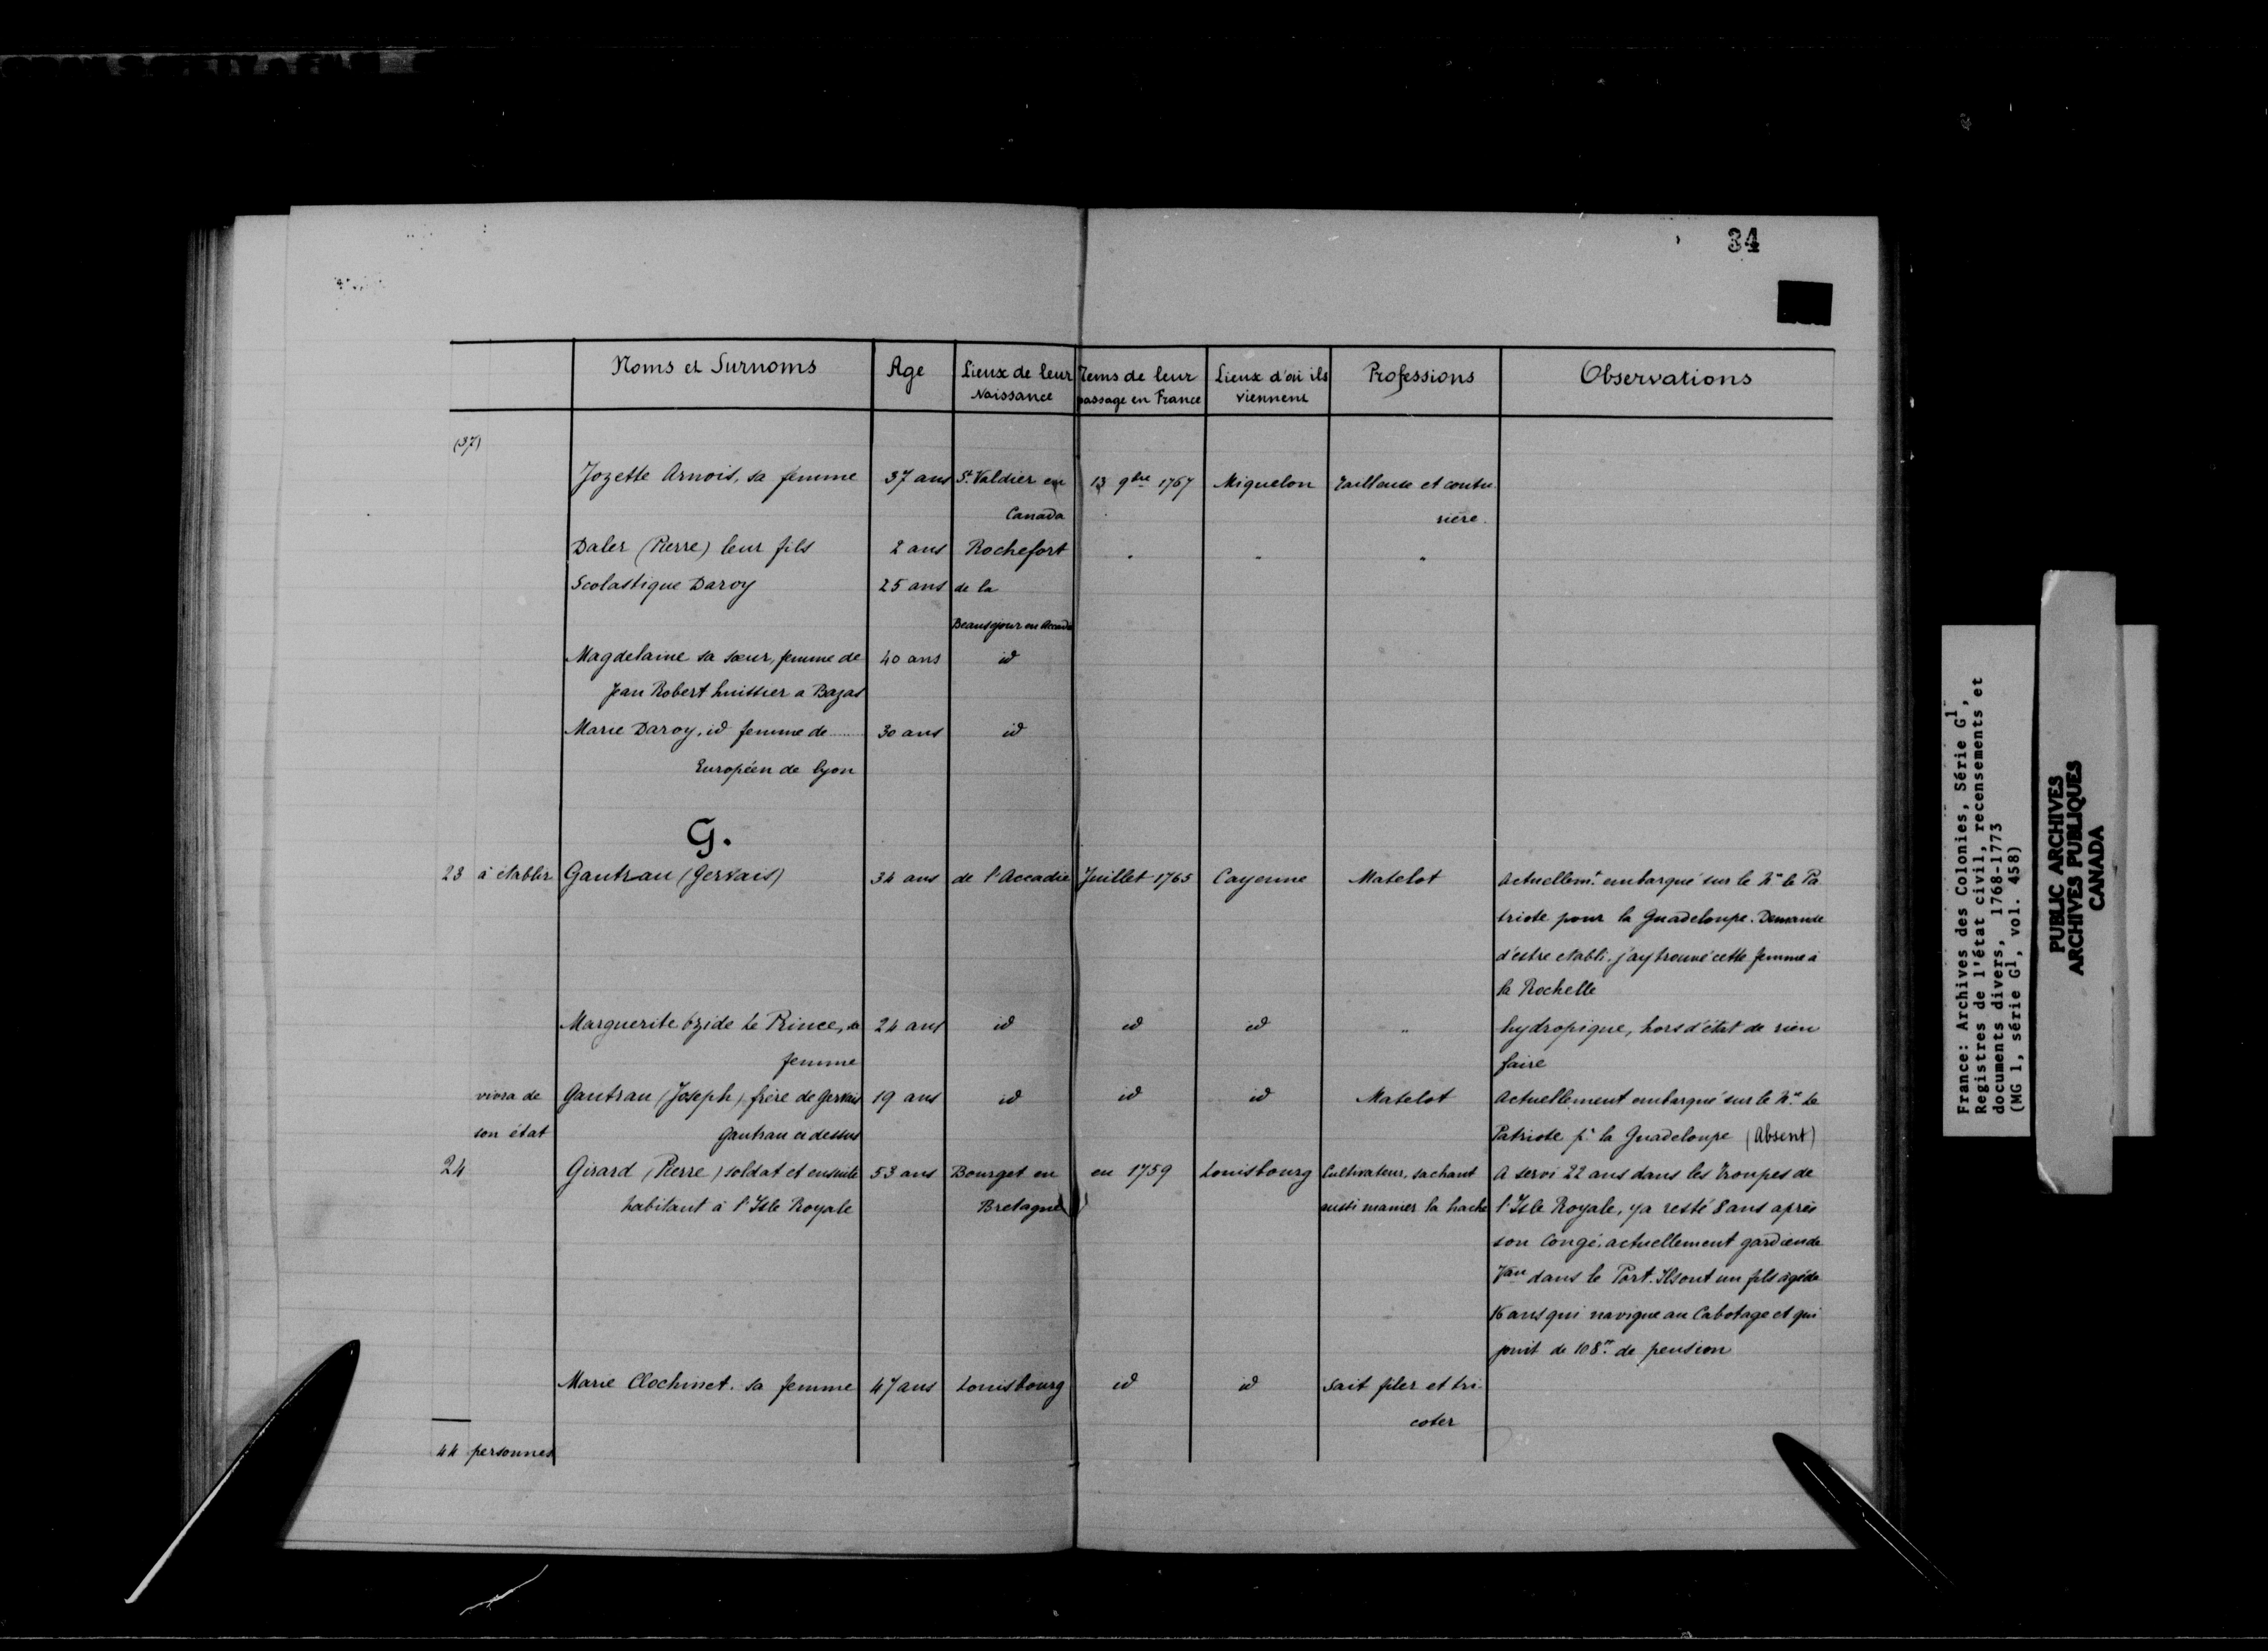 34
Noms et Surnoms | Age | Lieux de leur Naissance | Tems de leur passage en France | Lieux d'où ils viennent | Professions | Observations
(37)
Jozette Arnois, sa femme | 37 ans | St. Valdier en | 13 9bre 1767 | Miquelon | Tailleuse et coutu
Canada | rière.
Daler (Pierre) leur fils | 2 ans | Rochefort | " | " | "
Scolastique Daroy | 25 ans | de la
Beausejour en Accadie
Magdelaine sa sœur, femme de | 40 ans | id
Jean Robert huissier a Bazas
Marie Daroy, id femme de ...... | 30 ans | id
Européen de lyon
G.
23 à établir | Gautrau (Gervais) | 34 ans | de l'Accadie | Juillet 1765 | Cayenne | Matelot | Actuellemt. embarqué sur le Nre le Pa
triote pour la Guadeloupe. Demande
d'estre etabli. j'ay trouvé cette femme à
la Rochelle
Marguerite Ozide Le Prince, sa | 24 ans | id | id | id | " | hydropique, hors d'état de rien
femme | faire
vivra de | Gautrau (Joseph), frère de Gervais | 19 ans | id | id | id | Matelot | Actuellement embarqué sur le Nre Le
son état | Gautrau ci dessus | Patriote pr. la Guadeloupe (Absent)
24 | Girard (Pierre) soldat et ensuite | 53 ans | Bourget en | en 1759 | Louisbourg | Cultivateur, sachant | A servi 22 ans dans les Troupes de
habitant à l'Isle Royale | Bretagne | aussi manier la hache | l'Isle Royale, y a resté 8 ans après
son Congé. actuellement gardien de
Vau dans le Port. Ils ont un fils âgé de
16 ans qui navigue au Cabotage et qui
jouit de 108tt. de pension
Marie Clochinet. sa femme | 47 ans | Louisbourg | id | id | Sait filer et tri-
coter
44 personnes
France: Archives des Colonies, Série G1,
Registres de l'état civil, recensements et
documents divers, 1768-1773
(MG 1, série G1, vol. 458)
PUBLIC ARCHIVES
ARCHIVES PUBLIQUES
CANADA